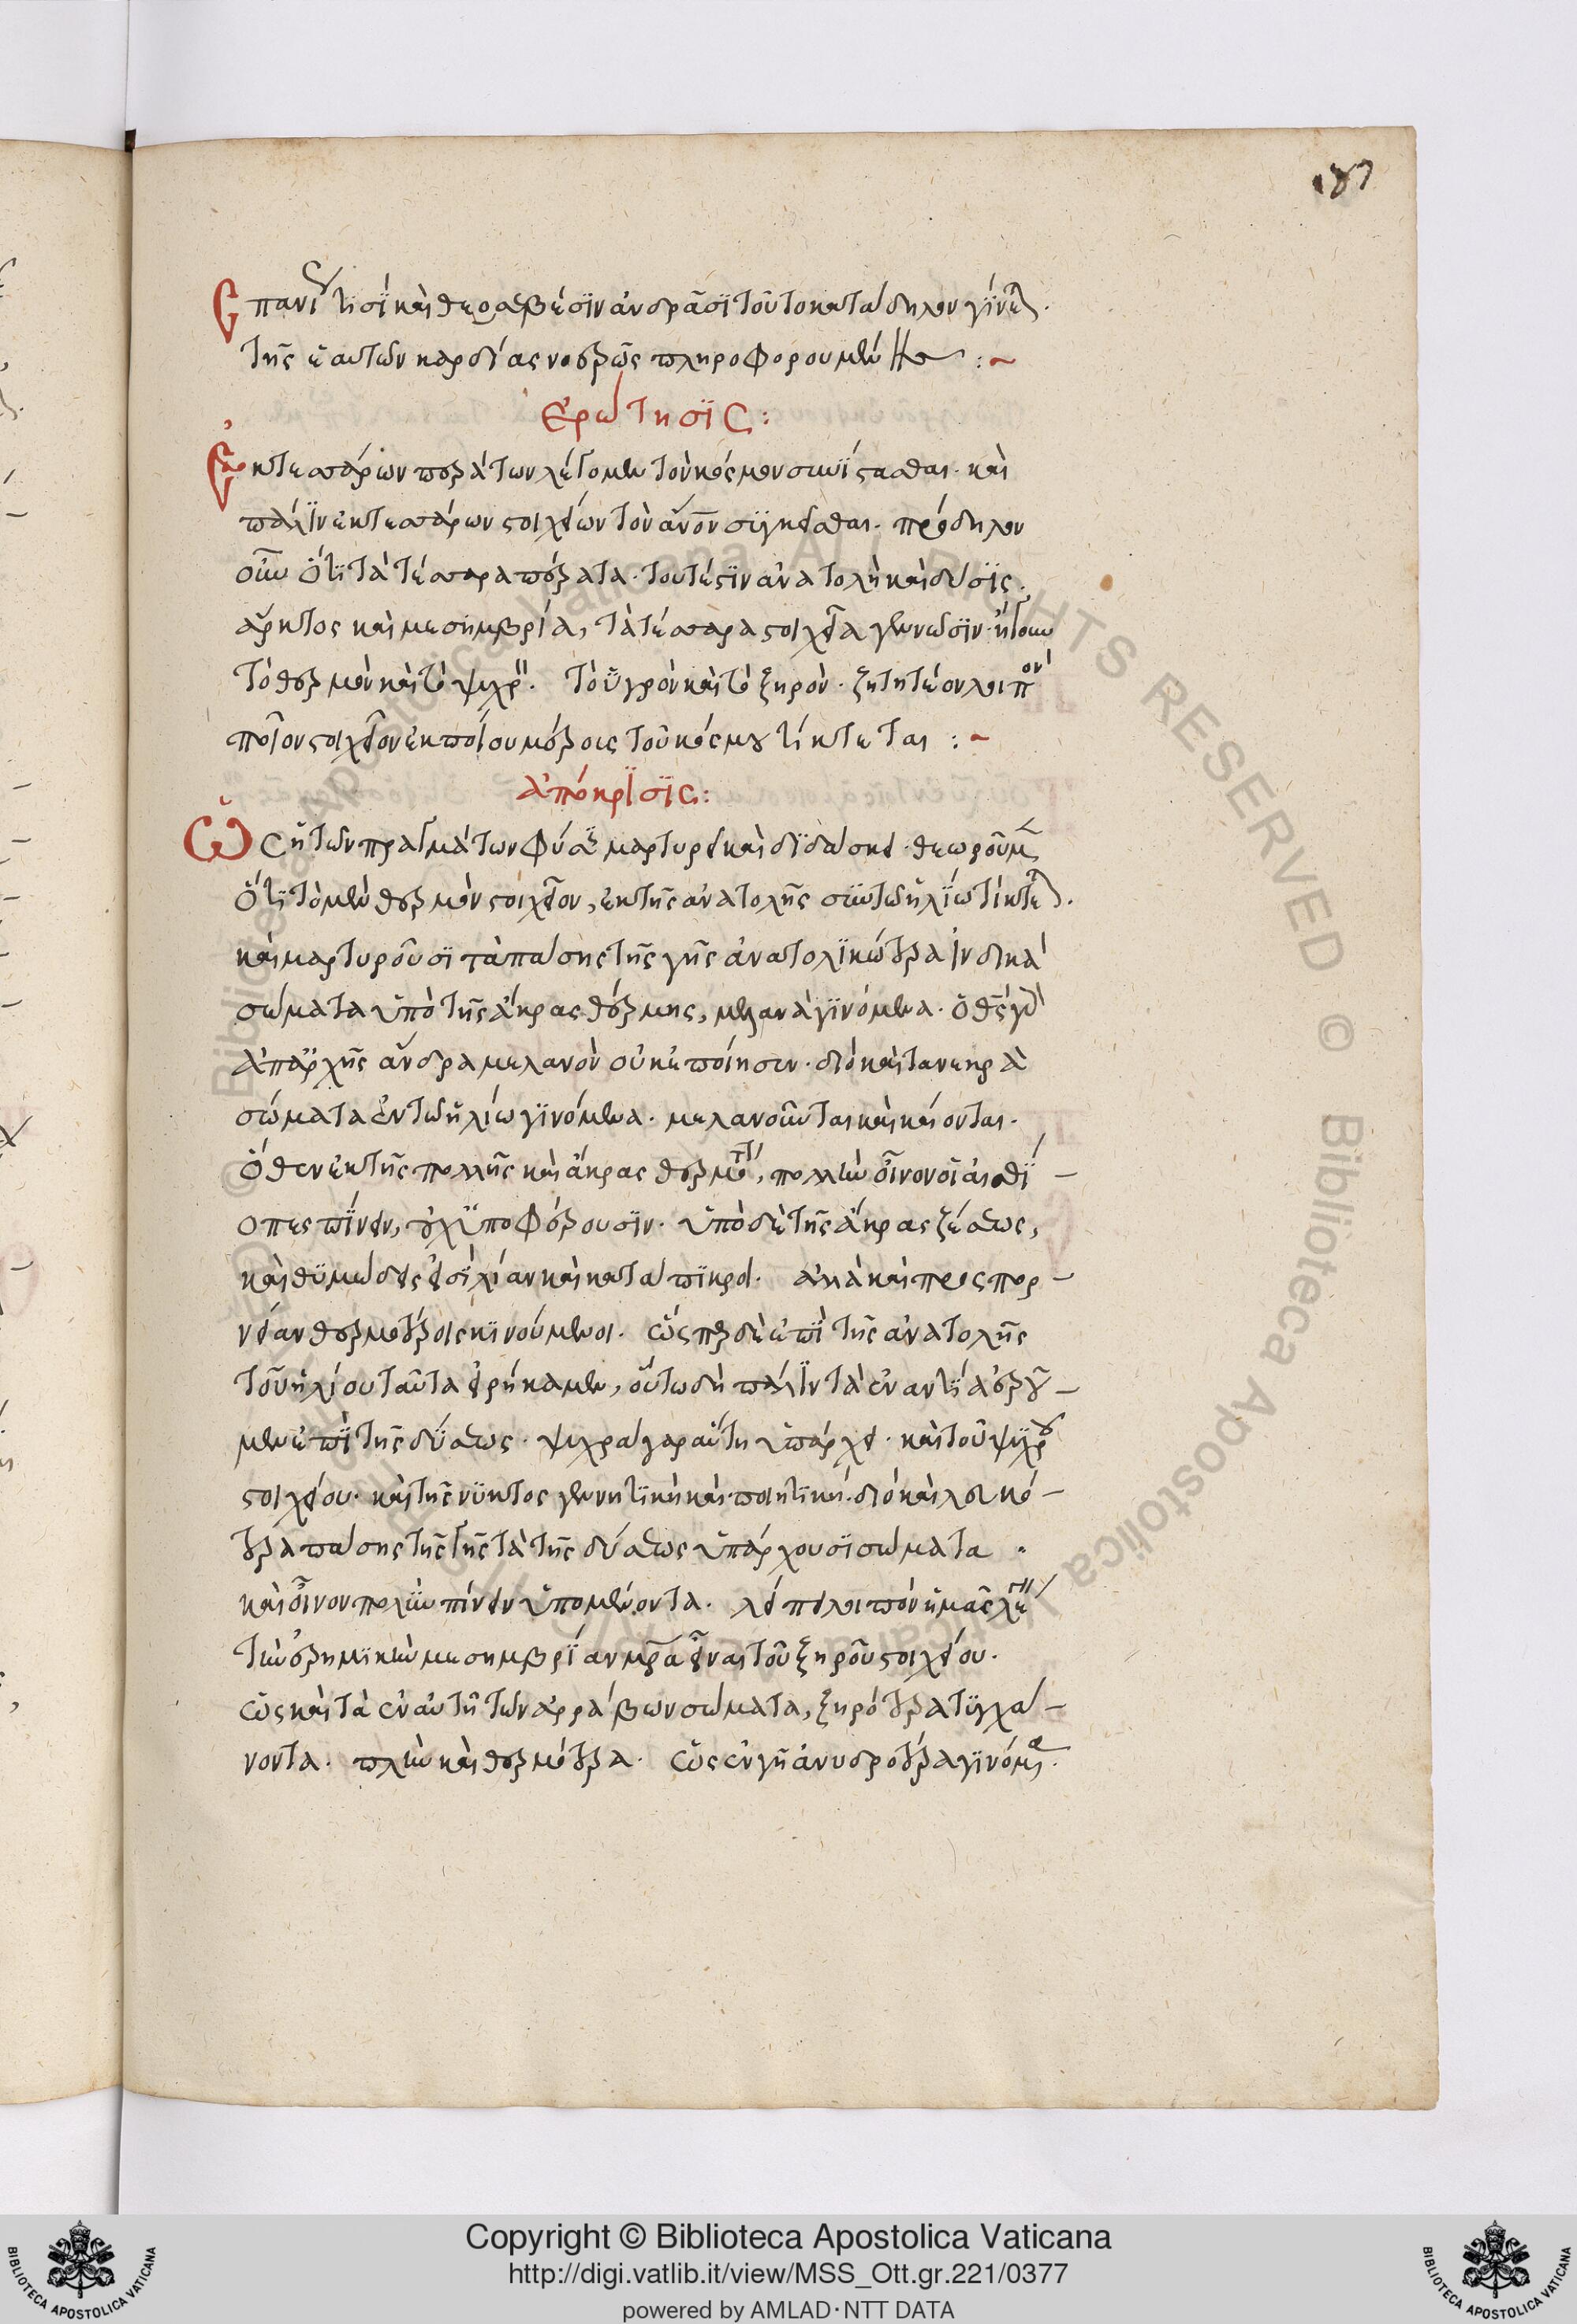 187
Ἐπανίστισι καὶ θεοσεβέσιν ἀνδράσι τοῦτο κατάδηλον γίνεται.
τῆς ἑαυτῶν καρδίας νοερῶς πληροφορουμένης :~
Ἐρώτησις:
Ἐκ τεσσάρων περάτων λέγομεν τὸν κόσμον συνίστασθαι. καὶ
πάλιν ἐκ τεσσάρων στοιχείων τὸν ἄνον συγκεῖσθαι. πρόδηλον
οὖν ὅτι τὰ τέσσαρα πέρατα. τουτέστιν ἀνατολὴ καὶ δύσις.
ἄρκτος καὶ μεσημβρία, τὰ τέσσαρα στοιχεῖα γεννῶσιν. ἤγουν
τὸ θερμὸν καὶ τὸ ψυχρὸν. τὸ ὑγρὸν καὶ τὸ ξηρὸν. ζητητέον λοιπὸν
ποῖον στοιχεῖον ἐκ ποίου μέρους τοῦ κόσμου τίκτεται :~
ἀπόκρισις:
Ὡς ἡ τῶν πραγμάτων φύσις μαρτυρεῖ καὶ διδάσκει. θεωροῦμεν
ὅτι τὸ μὲν θερμὸν στοιχεῖον, ἐκ τῆς ἀνατολῆς σὺν τῶ ἡλίω τίκτεται.
καὶ μαρτυροῦσι τὰ πάσης τῆς γῆς ἀνατολικώτερα ἰνδικὰ
σώματα ὑπὸ τῆς ἄκρας θέρμης, μελανὰ γινόμενα. ὁ θς γὰρ
ἀπαρχῆς ἄνδρα μελανὸν οὐκ ἐποίησεν. διὸ καὶ τὰ νεκρὰ
σώματα ἐν τῶ ἡλίω γινόμενα. μελανοῦνται καὶ καίονται.
ὅθεν ἐκ τῆς πολλῆς καὶ ἄκρας θερμότητος, πολλὺν οἶνον οἱ αἰθί-
οπες πίνειν, οὐχ ὑποφέρουσιν. ὑπὸ δὲ τῆς ἄκρας ζέσεως,
καὶ θυμώδεις εἰσὶ λίαν καὶ κατάπικροι. ἀλλὰ καὶ προς πορ-
νείαν θερμοτέροις κινούμενοι. ὥσπερ δὲ ἐπὶ τῆς ἀνατολῆς
τοῦ ἡλίου ταῦτα εἰρήκαμεν, οὕτω δὴ πάλιν τὰ ἐναντία ἐροῦ-
μεν ἐπὶ τῆς δύσεως. ψυχρὰ γὰρ αὕτη ὑπάρχει. καὶ τοῦ ψυχροῦ
στοιχείου. καὶ τῆς νυκτὸς γεννητικὴ καὶ ποιητικὴ. διὸ καὶ λευκό-
τερα πάσης τῆς γῆς τὰ τῆς δύσεως ὑπάρχουσι σώματα.
καὶ οἶνον πολὺν πίνειν ὑπομένοντα. λείπει λοιπὸν ἡμᾶς λέγειν
τὴν ἐρημικὴν μεσημβρίαν μρα εἶναι τοῦ ξηροῦ στοιχείου.
ὡς καὶ τὰ ἐν αὐτῆ τῶν ἀρράβων σώματα, ξηρότερα τυγχά-
νοντα. πλὴν καὶ θερμότερα. ὡς ἐν γῆ ἀνυδροτέρα γινόμενα.
Copyright © Biblioteca Apostolica Vaticana
http://digi.vatlib.it/view/MSS_Ott.gr.221/0377
powered by AMLAD·NTT DATA